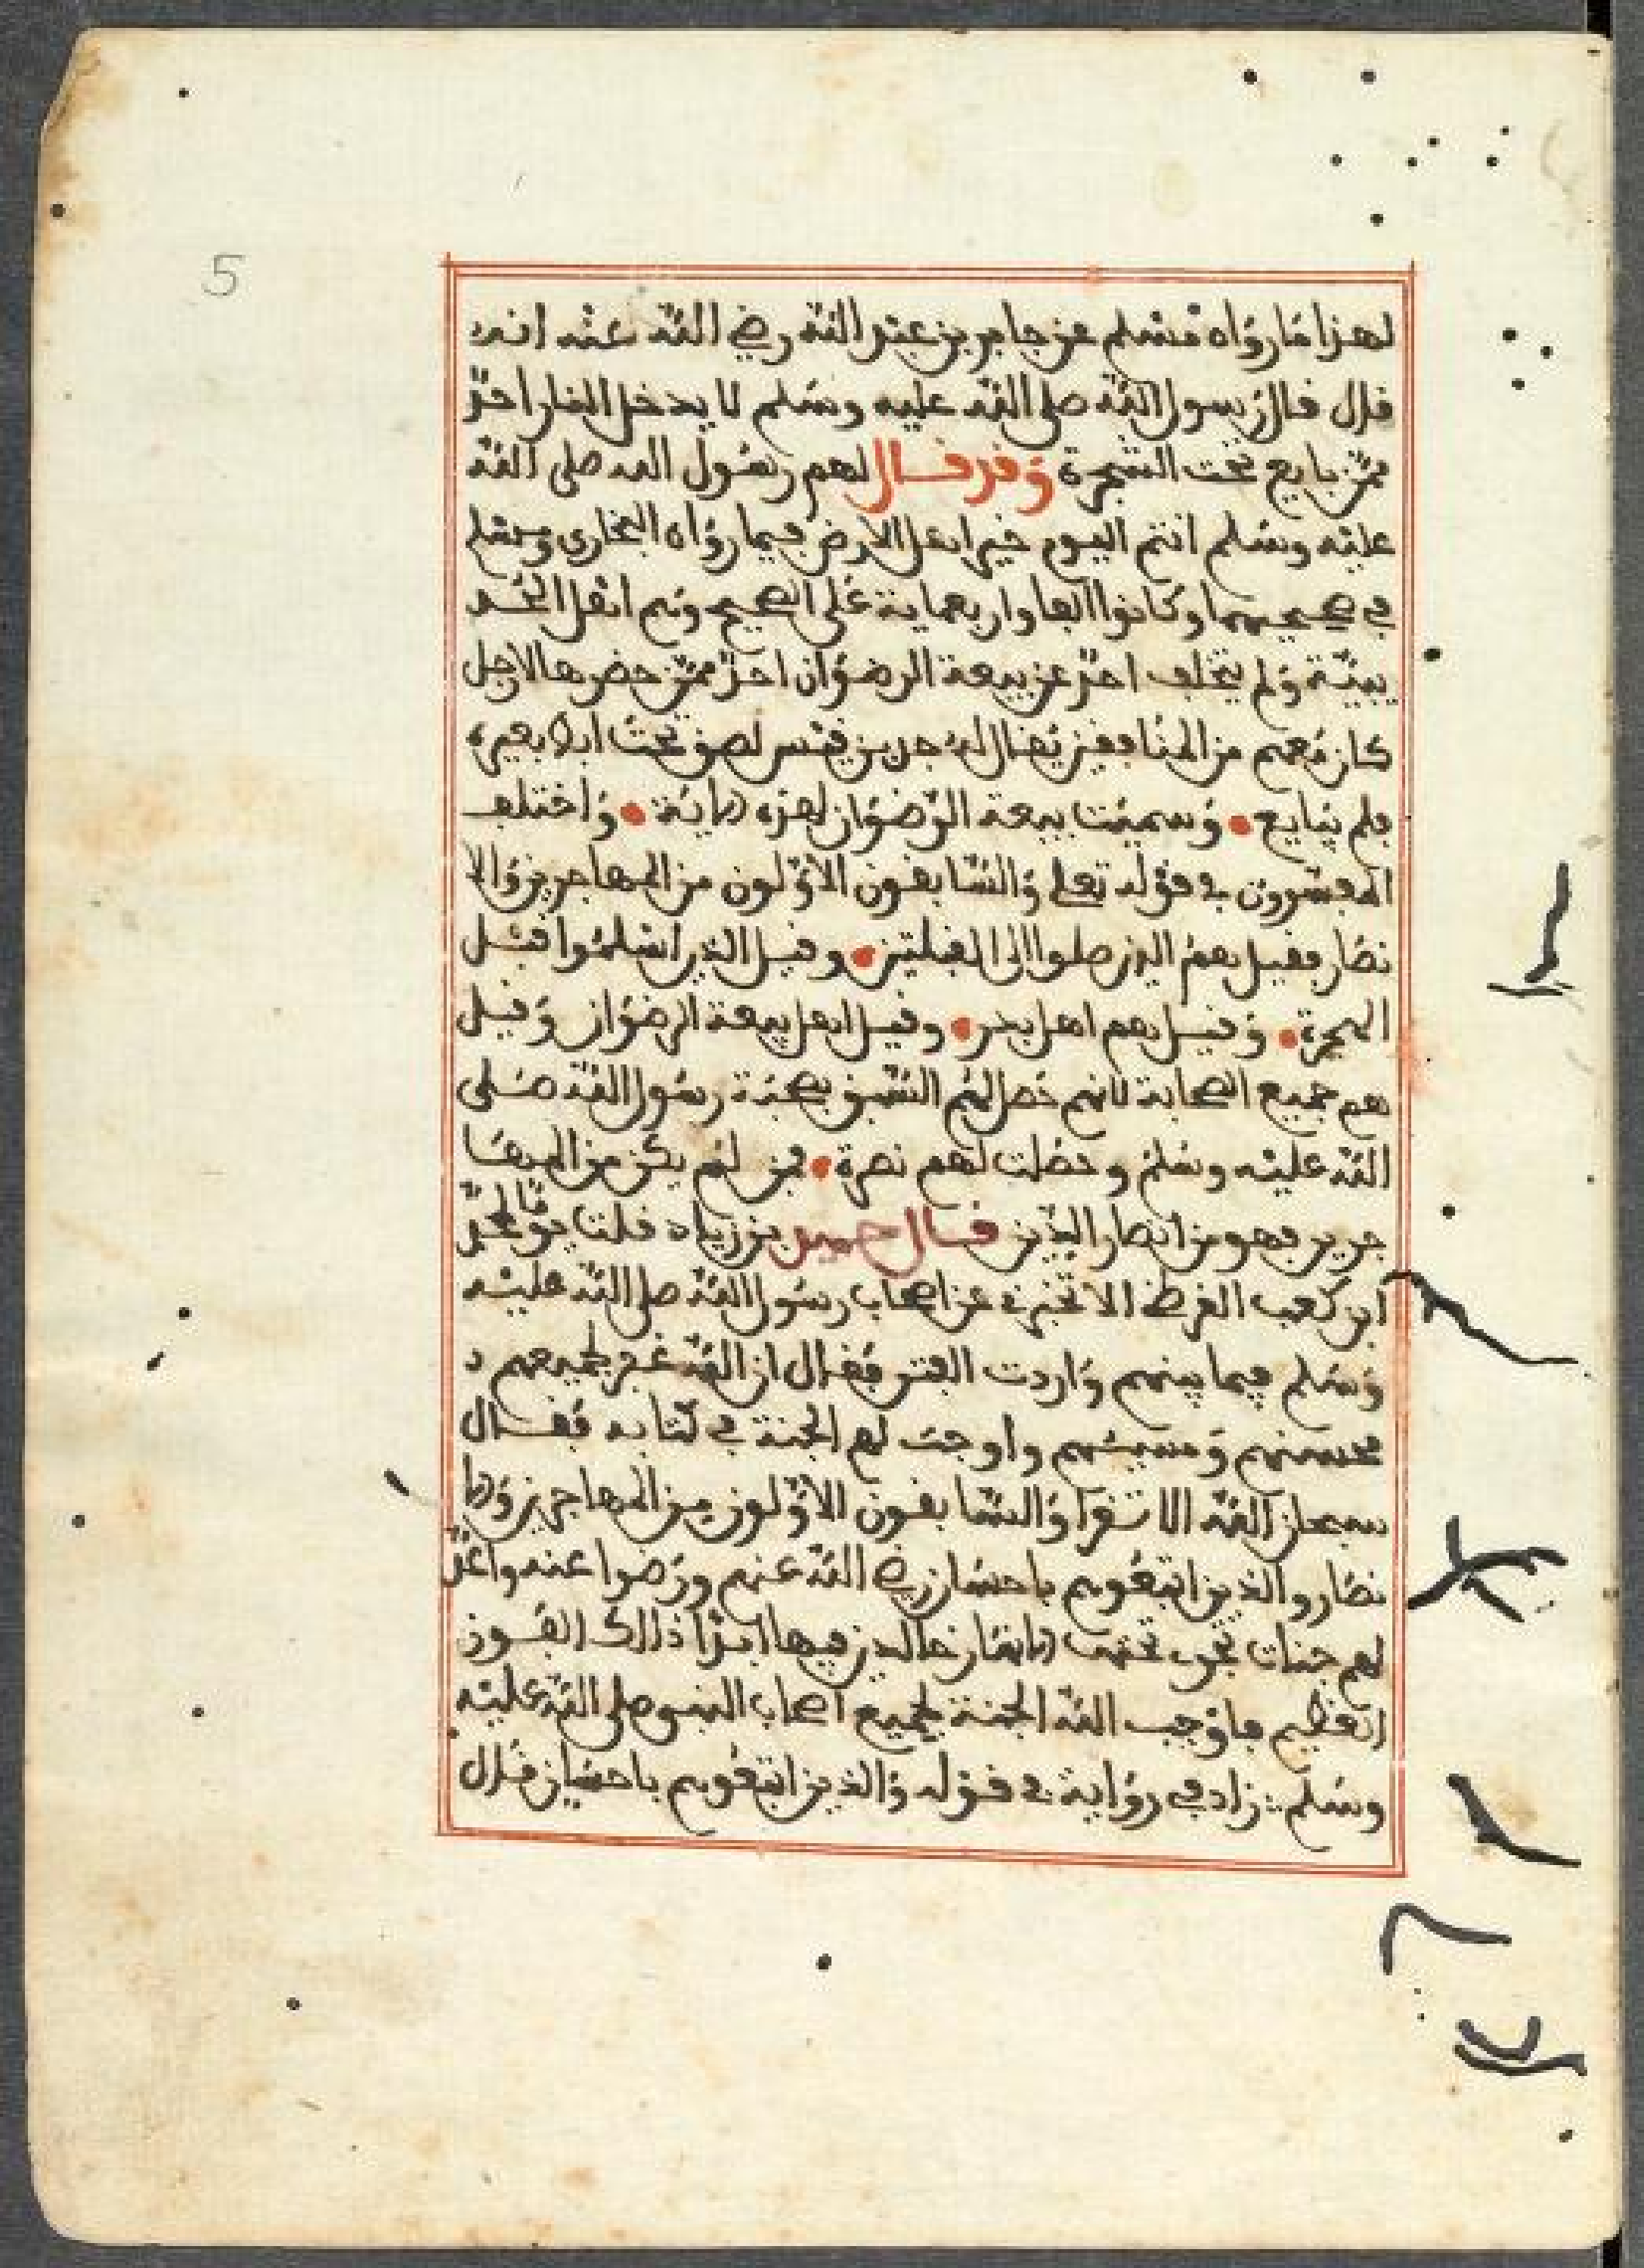 5
لهذا ما رواه مسلم عن جابر بن عبد الله رضي الله عنه انه
قال قال رسول الله صلى الله عليه وسلم لا يدخل النار احد
ممن بايع تحت الشجرة وقد قال لهم رسول الله صلى الله
عليه وسلم انتم اليوم خير اهل الارض فيما رواه البخاري ومسلم
في صحيحيهما وكانوا الفا واربعماية على الصحيح وهم اهل الحد
يبية ولم يتخلف احد عن بيعة الرضوان احد ممن حضرها الا رجل
كان معهم من المنافقين يقال له جد بن قيس لصق تحت ابط بعيره
فلم يبايع • وسميت بيعة الرضوان لهذه الاية • واختلف
المفسرون في قوله تعلى والسابقون الاولون من المهاجرين والا
نصار فقيل هم الذين صلوا الى القبلتين • وقيل الذين اسلموا قبل
الهجرة • وقيل هم اهل بدر • وقيل اهل بيعة الرضوان وقيل
هم جميع الصحابة لانهم حصل لهم السبق بصحبة رسول الله صلى
الله عليه وسلم وحصلت لهم نصرة • فمن لم يكن من المهاـ
جرين فهو من انصار الدين قال حميد بن زياد قلت يوما لمحمد
ابن كعب القرظي الا تخبرني عن اصحاب رسول الله صلى الله عليه
وسلم فيما بينهم واردت الفتن فقال ان الله غفر لجميعهم
محسنهم ومسيئهم واوجب لهم الجنة في كتابه فقال
سبحان الله الا تقرا والسابقون الاولون من المهاجرين والا
نصار والذين اتبعوهم باحسان رضي الله عنهم ورضوا عنه واعد
لهم جنات تجري تحتها الانهار خالدين فيها ابدا ذالك الفوز
العظيم فاوجب الله الجنة لجميع اصحاب النبي صلى الله عليه
وسلم زاد في رواية في قوله والذين اتبعوهم باحسان قال